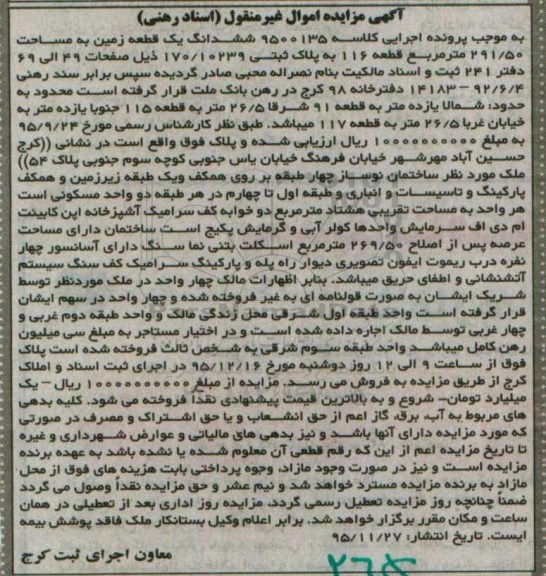 آگهی مزایده اموال غیرمنقول (اسناد رهنی)
به موجب پرونده اجرایی کلاسه ۹۵۰۰۱۳۵ ششدانگ یک قطعه زمین به مساحت
۲۹۱/۵۰ مترمربع قطعه ۱۱۶ به پلاک ثبتی ۱۷۰/۱۰۲۳۹ ذیل صفحات ۴۹ الی ۶۹
دفتر ۲۴۱ ثبت و اسناد مالکیت بنام نصراله محبی صادر گردیده سپس برابر سند رهنی
۹۲/۶/۴ – ۱۴۱۸۳ دفترخانه ۹۸ کرج در رهن بانک ملت قرار گرفته است محدود به
حدود: شمالا یازده متر به قطعه ۹۱ شرقا ۲۶/۵ متر به قطعه ۱۱۵ جنوبا یازده متر به
خیابان غربا ۲۶/۵ متر به قطعه ۱۱۷ میباشد. طبق نظر کارشناس رسمی مورخ ۹۵/۹/۲۴
به مبلغ ۱۰۰۰۰۰۰۰۰۰۰ ریال ارزیابی شده و پلاک فوق واقع است در نشانی ((کرج
حسین آباد مهرشهر خیابان فرهنگ خیابان یاس جنوبی کوچه سوم جنوبی پلاک ۵۴))
ملک مورد نظر ساختمان نوساز چهار طبقه بر روی همکف ویک طبقه زیرزمین و همکف
پارکینگ و تاسیسات و انباری و طبقه اول تا چهارم در هر طبقه دو واحد مسکونی است
هر واحد به مساحت تقریبی هشتاد مترمربع دو خوابه کف سرامیک آشپزخانه اپن کابینت
ام دی اف سرمایش واحدها کولر آبی و گرمایش پکیج است ساختمان دارای مساحت
عرصه پس از اصلاح ۲۶۹/۵۰ مترمربع اسکلت بتنی نما سنگ دارای آسانسور چهار
نفره درب ریموت ایفون تصویری دیوار راه پله و پارکینگ سرامیک کف سنگ سیستم
آتشنشانی و اطفای حریق میباشد. بنابر اظهارات مالک چهار واحد در ملک موردنظر توسط
شریک ایشان به صورت قولنامه ای به غیر فروخته شده و چهار واحد در سهم ایشان
قرار گرفته است واحد طبقه اول شرقی محل زندگی مالک و واحد طبقه دوم غربی و
چهار غربی توسط مالک اجاره داده شده است و در اختیار مستاجر به مبلغ سی میلیون
رهن کامل میباشد واحد طبقه سوم شرقی به شخص ثالث فروخته شده است پلاک
فوق از ساعت ۹ الی ۱۲ روز دوشنبه مورخ ۹۵/۱۲/۱۶ در اجرای ثبت اسناد و املاک
کرج از طریق مزایده به فروش می رسد. مزایده از مبلغ ۱۰۰۰۰۰۰۰۰۰۰ ریال – یک
میلیارد تومان– شروع و به بالاترین قیمت پیشنهادی نقدا فروخته می شود. کلیه بدهی
های مربوط به آب، برق، گاز اعم از حق انشعاب و یا حق اشتراک و مصرف در صورتی
که مورد مزایده دارای آنها باشد و نیز بدهی های مالیاتی و عوارض شهرداری و غیره
تا تاریخ مزایده اعم از این که رقم قطعی آن معلوم شده یا نشده باشد به عهده برنده
مزایده است و نیز در صورت وجود مازاد، وجوه پرداختی بابت هزینه های فوق از محل
مازاد به برنده مزایده مسترد خواهد شد و نیم عشر و حق مزایده نقداً وصول می گردد
ضمناً چنانچه روز مزایده تعطیل رسمی گردد، مزایده روز اداری بعد از تعطیلی در همان
ساعت و مکان مقرر برگزار خواهد شد. برابر اعلام وکیل بستانکار ملک فاقد پوشش بیمه
ایست. تاریخ انتشار: ۹۵/۱۱/۲۷
معاون اجرای ثبت کرج